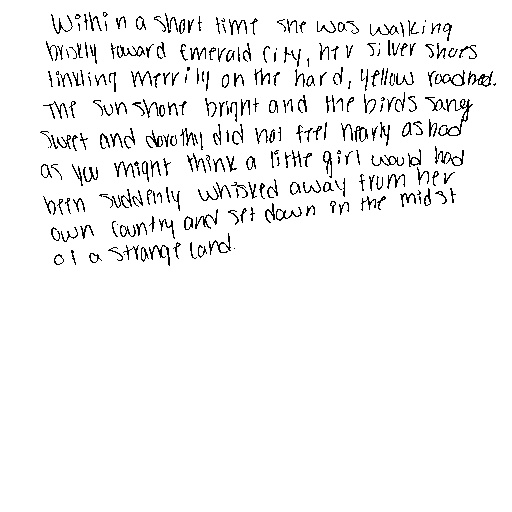 Within a short time she was walking
briskly toward Emerald City, her silver shoes
tinkling merrily on the hard, yellow roadbed.
The sun shone bright and the birds sang
sweet and dorothy did not feel nearly as bad
as you might think a little girl would had
been suddenly whisked away from her
own country and set down in the midst
of a strange land.